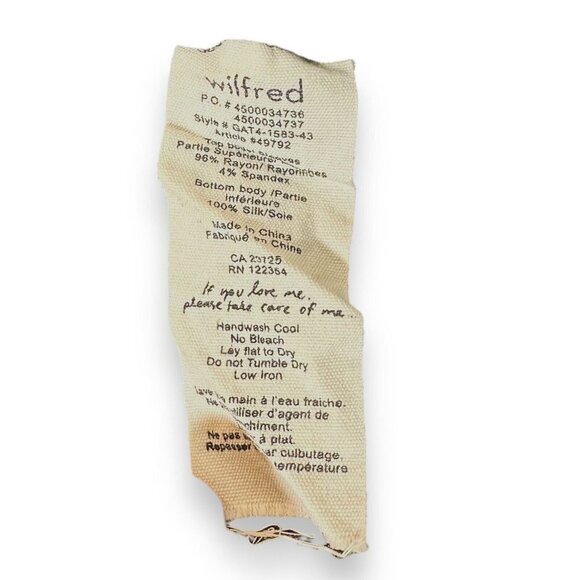 wilfred
P.O. # 4500034736
4500034737
Style # GAT4-1583-43
Article #49792
Top body
Partie Supérieure
96% Rayon/ Rayonnbes
4% Spandex
Bottom body /Partie
inférieure
100% Silk/Soie
Made in China
Fabriqué en Chine
CA 23725
RN 122364
If you love me,
please take care of me...
Handwash Cool
No Bleach
Lay flat to Dry
Do not Tumble Dry
Low Iron
main à l'eau fraiche.
d'agent de
Ne pas à plat.
Repasser par culbutage.
température